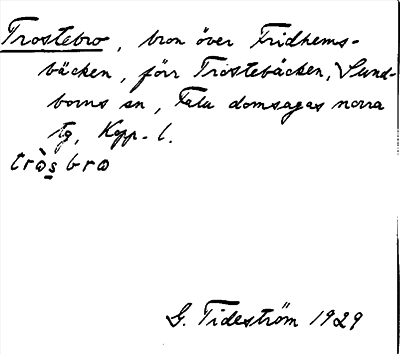 Trostebro, bron över Fridhems-
bäcken, förr Trostebäcken, Sund-
borns sn, Falu domsagas norra
tg, Kopp. l.
G. Tideström 1929